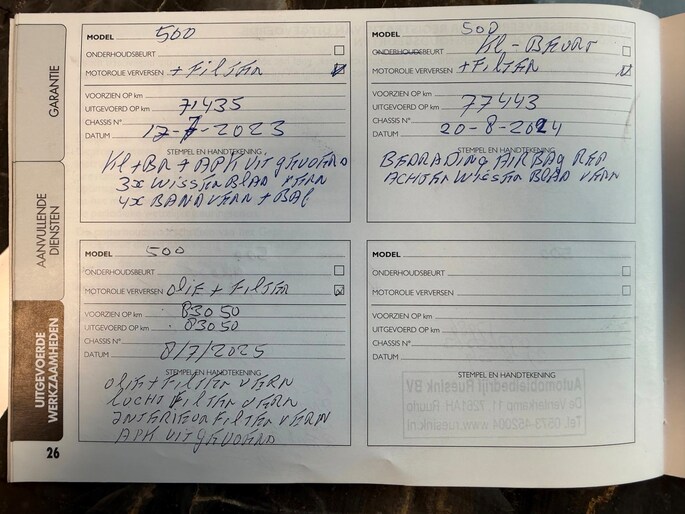 GARANTIE
AANVULLENDE
DIENSTEN
UITGEVOERDE
WERKZAAMHEDEN
26
MODEL 500
ONDERHOUDSBEURT
MOTOROLIE VERVERSEN + FiLTER
VOORZIEN OP km
UITGEVOERD OP km 71435
CHASSIS N°
DATUM 17-7-2023
STEMPEL EN HANDTEKENING
Kl + BR + APK UITGEVOERD
3x WISSERBLAD VERN
4x BAND VERN + BAL
MODEL 500
ONDERHOUDSBEURT Kl - BEURT
MOTOROLIE VERVERSEN + FILTER
VOORZIEN OP km
UITGEVOERD OP km 77443
CHASSIS N°
DATUM 20-8-2024
STEMPEL EN HANDTEKENING
BEDRADING AIRBAG REP
ACHTER WISSER BLAD VERN
MODEL 500
ONDERHOUDSBEURT
MOTOROLIE VERVERSEN OLIE + FILTER
VOORZIEN OP km 83050
UITGEVOERD OP km 83050
CHASSIS N°
DATUM 8/7/2025
STEMPEL EN HANDTEKENING
OLIE + FILTER VERN
LUCHT FILTER VERN
INTERIEUR FILTER VERN
APK UITGEVOERD
MODEL
ONDERHOUDSBEURT
MOTOROLIE VERVERSEN
VOORZIEN OP km
UITGEVOERD OP km
CHASSIS N°
DATUM
STEMPEL EN HANDTEKENING
Automobielbedrijf Ruesink BV
De Venterkamp 11 7261AH Ruurlo
Tel. 0573-452004 www.ruesink.nl